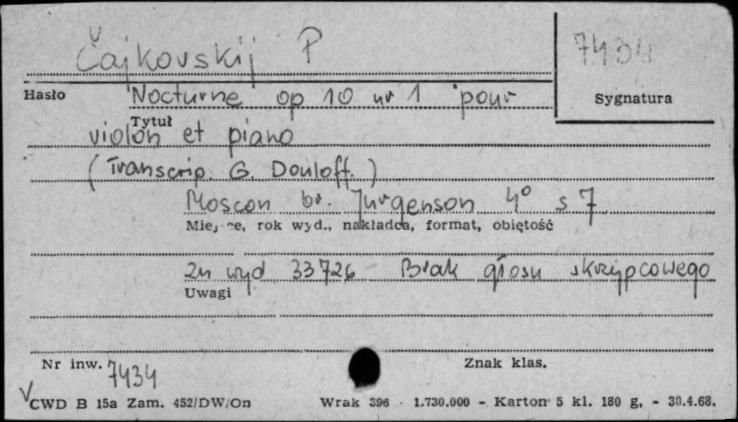 Čajkovskij P
7434
Hasło
Sygnatura
Nocturne op 10 nr 1 pour
Tytuł
violon et piano
(Transcrip. G. Douloff.)
Moscou br. Jurgenson 4° s 7
Miejsce, rok wyd., nakładca, format, objętość
zn wyd 33726 Brak głosu skrzypcowego
Uwagi
Nr inw. 7434
Znak klas.
CWD B 15a Zam. 452/DW/On Wrak 396 - 1.730.000 - Karton 5 kl. 180 g. - 30.4.68.